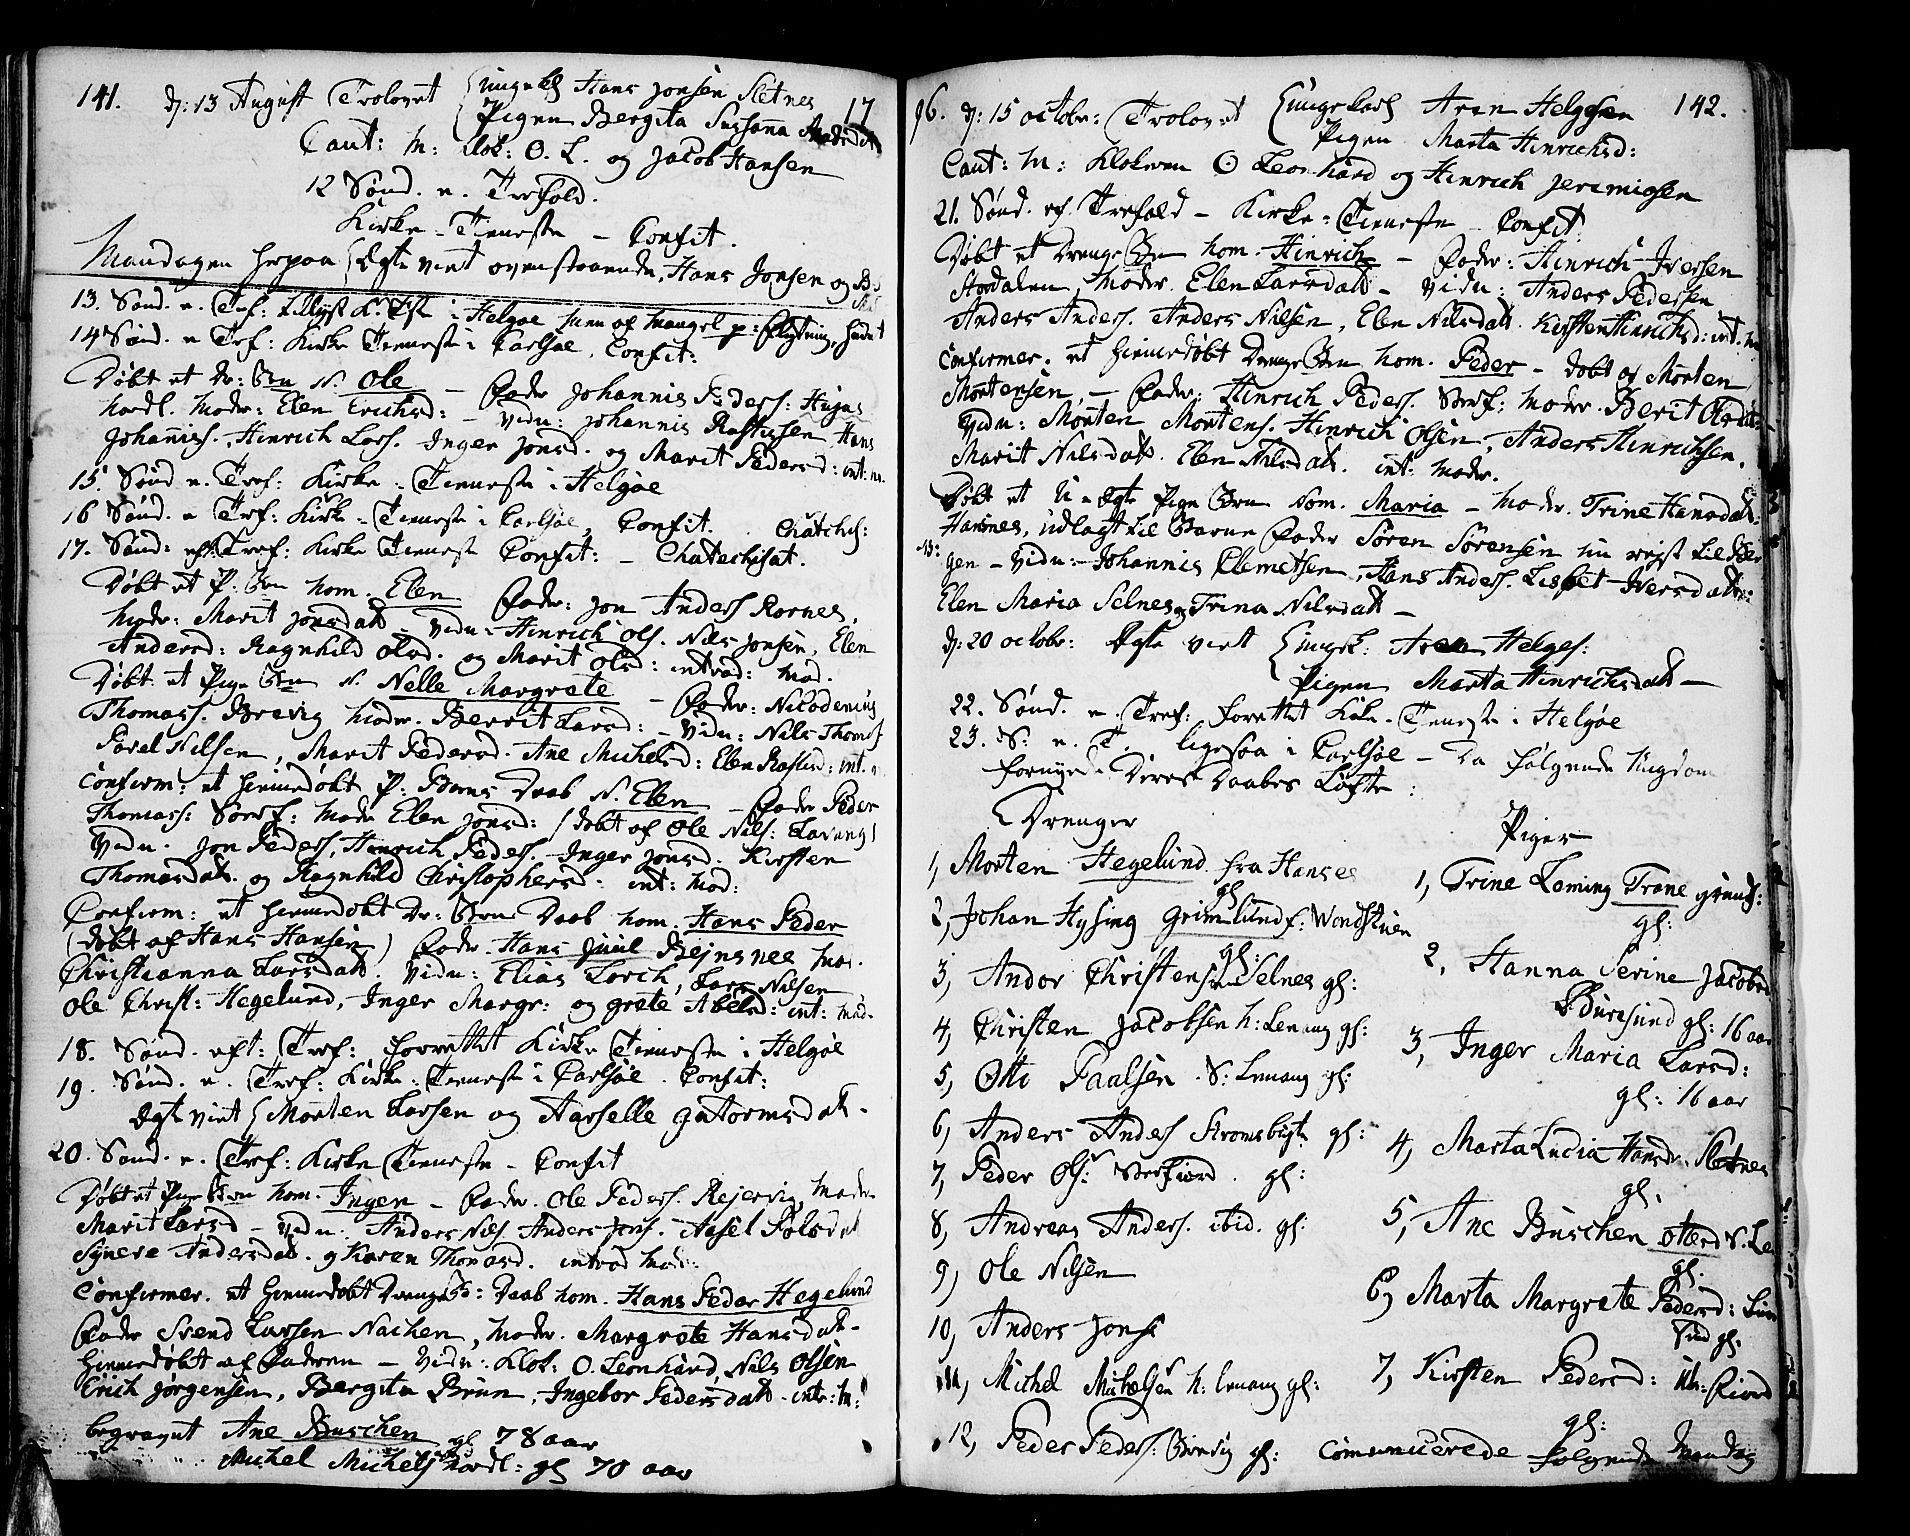 141. d: 13 August Trolovet Ungkl Hans Jonsen Sletnes 17
Pigen Bergita Susanna Madsdat
Caut: M: Klok: O. L. og Jacob Hansen
12 Sønd. e. Trefold.
Kirke-Tieneste – Confit.
Mandagen herpaa Egte viet ovenstaaende, Hans Jonsen og
13. Sønd. e. Tref: i Helgøe af Mangel
14 Sønd. e Tref: Kirke Tieneste i Carlsøe, Confit:
Døbt et Dr: Brn N. Ole – Fader Johannis Peders:
Moder: Elen Erichsd: – Vidn: Johannis Rasmusen Hans
Johaniss. Hinrich Lars. Inger Jonsd. og Marit Pedersd: int: m.
15. Sønd e. Tref: Kirke-Tieneste i Helgøe
16 Sønd. e Tref: Kirke-Tieneste i Carlsøe, Confit. Chatechis:
17. Sønd: eft Tref: Kirke Tieneste Confit: – Chatechisat.
Døbt et P: Brn nom. Elen Fader: Jon Anders Kornes,
Moder: Marit Jonsdatt – Vidn: Hinrich Ols. Nils Jonsen, Elen
Andersd: Ragnhild Olsd. og Marit Olsd: introd: Mod.
Døbt et Pige Brn N. Nelle Margrete – Fader: Nicodemus
Thomass. Brevig Moder. Berrit Larsd: – Vidn: Nils Thomes
Povel Nilsen, Marit Pedersd. Ane Michelsd: Elen Rasmsd: int.
Confirm: et hiemedøbt P: Barns Daab N. Elen – Fader Peder
Thomass: Moder Elen Jonsd: (døbt af Ole Nils: Lavang)
Vidn. Jon Peders, Hinrich Peders. Inger Jonsd. Kirsten
Thomasdatt. og Ragnhild Christophersd: int: Mod:
Confirm: et hiemedøbt Dr: Brns Daab nom. Hans Peder
(døbt af Hans Hansen) Fader Hans Juul Bejnsnes Mo.
Christianna Larsdatt. Vidn: Elias Lorch, Lars Nilsen
Ole Christ: Hegelund, Inger Margr: og Grete Abelsd: int: Mod.
18. Sønd. eft: Tref: forrettet Kirke Tieneste i Helgøe
19. Sønd. e. Tref: Kirke-Tieneste i Carlsøe. Confit:
Egte viet Morten Larsen og Aarselle Gutormsdatt.
20. Sønd. e. Tref: Kirke Tieneste – Confit
Døbt et Pige Brn nom. Ingen – Fader Ole Peders. Rejervig Moder
Marit Larsd – Vidn: Anders Nils. Anders Jons. Aasel Polsd
Synere Andersdatt. og Karen Thomasd. introd Mod:
Confirmer. et hiemedøbt Drenge B: Daab nom. Hans Peder Hegelund
Fader Svend Larsen Nachen, Moder. Margrete Hansdat.
hiemedøbt af Faderen – Vidn: Klok: O. Leonhard, Nils Olsen
Erich Jørgensen, Bergita Brun, Ingebor Pedersdatt. intr: M:
begravet Ane Buschen gl 78 aar
Michel Michels gl 70 aar
96. d: 15 octobr: Trolovet Ungekarl Aren Helgesen 142.
Pigen Marta Hinrichsd:
Caut: M: Klokeren O Leonhard og Hinrich Jeremiasen
21. Sønd. ef. Trefold – Kirke-Tieneste Confit.
Døbt et Drenge Brn nom. Hinrich – Fader: Hinrich Iversen
Stordalen, Moder. Elen Larsdatt – Vidn: Anders Pedersen
Anders Anders. Anders Nilsen, Elen Nilsdatt. Kirsten Hinrichsd: int. M
Confirmer. et hiemedøbt Drenge Brn nom. Peder – døbt af Morten
Mortensen, – Fader: Hinrich Peders. Moder. Berit
Vidn: Morten Mortens. Hinrich Olsen, Anders Hinrichsen.
Marit Nilsdatt. Elen Nilsdatt. int: Moder.
Døbt et U-Egte Pige Brn Nom. Maria – Moder. Trine Hansdatt:
Hansnes, udlagt til Barne Fader Søren Sørensen nu rejst til
gen – Vidn: Johannis Clemetsen, Hans Anders. Lisbet Iversdatt:
Elen Maria Selnes og Trina Nilsdatt –
d: 20 octobr: Egte viet Ungk: Aren Helges:
Pigen Marta Hinrichsdatt –
22. Sønd. e. Tref: forettet Kirke-Tieneste i Helgøe
23. S: e. T. ligesaa i Carlsøe – Da følgende Ungdom
fornyede Deres Daabes Løfte:
Drenger
1, Morten Hegelund fra Hansnes
gl
2, Johan Hysing Grimlund f: Wandstuen
gl:
3, Andor Christensen Selnes gl:
4, Christen Jacobsen N: Lenang gl:
5, Otte Paalsen S: Lenang gl:
6, Anders Anders Stromsbugte gl:
7, Peder Ols: gl:
8, Andreas Anders. ibid. gl:
9, Ole Nilsen
10, Anders Jonse
11, Michel Michelsen N: Lenang gl:
12, Peder Peders: gl:
Piger
1, Trine Loming Trane Grund:
gl:
2, Hanna Serine Jacobs
Buresund gl: 16 aar
3, Inger Maria Larsd:
gl: 16 aar
4, Marta Lucia Hansd. Sletnes
gl.
5, Ane Buschen Ottersd N. Le
gl.
6, Marta Margrete Pedersd:
sund gl.
7, Kirsten Pedersd:
gl:
Comunicerede følgende Mandag